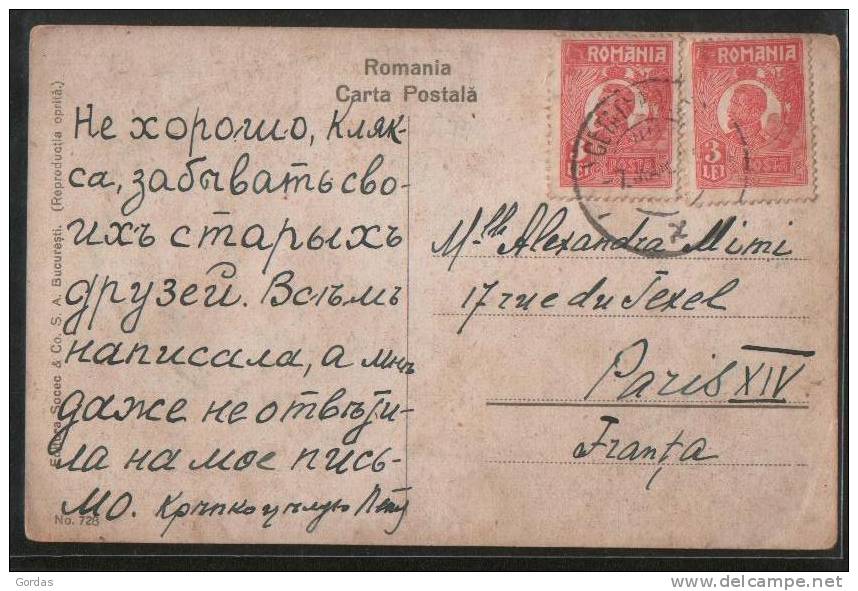 Romania
Carta Postală
ROMANIA
ROMANIA
3
LEI
POSTA
Не хорошо, Кляк-
са, забывать сво-
ихъ старыхъ
друзей. Всѣмъ
написала, а мнѣ
даже не отвѣти-
ла на мое пись-
мо. Крѣпко цѣлую
Mlle Alexandra Mimi
17 rue du Texel
Paris XIV
Franța
Editura Socec & Co. S. A. București. (Reproducția oprită.)
No. 728
Gordas
delcampe.net